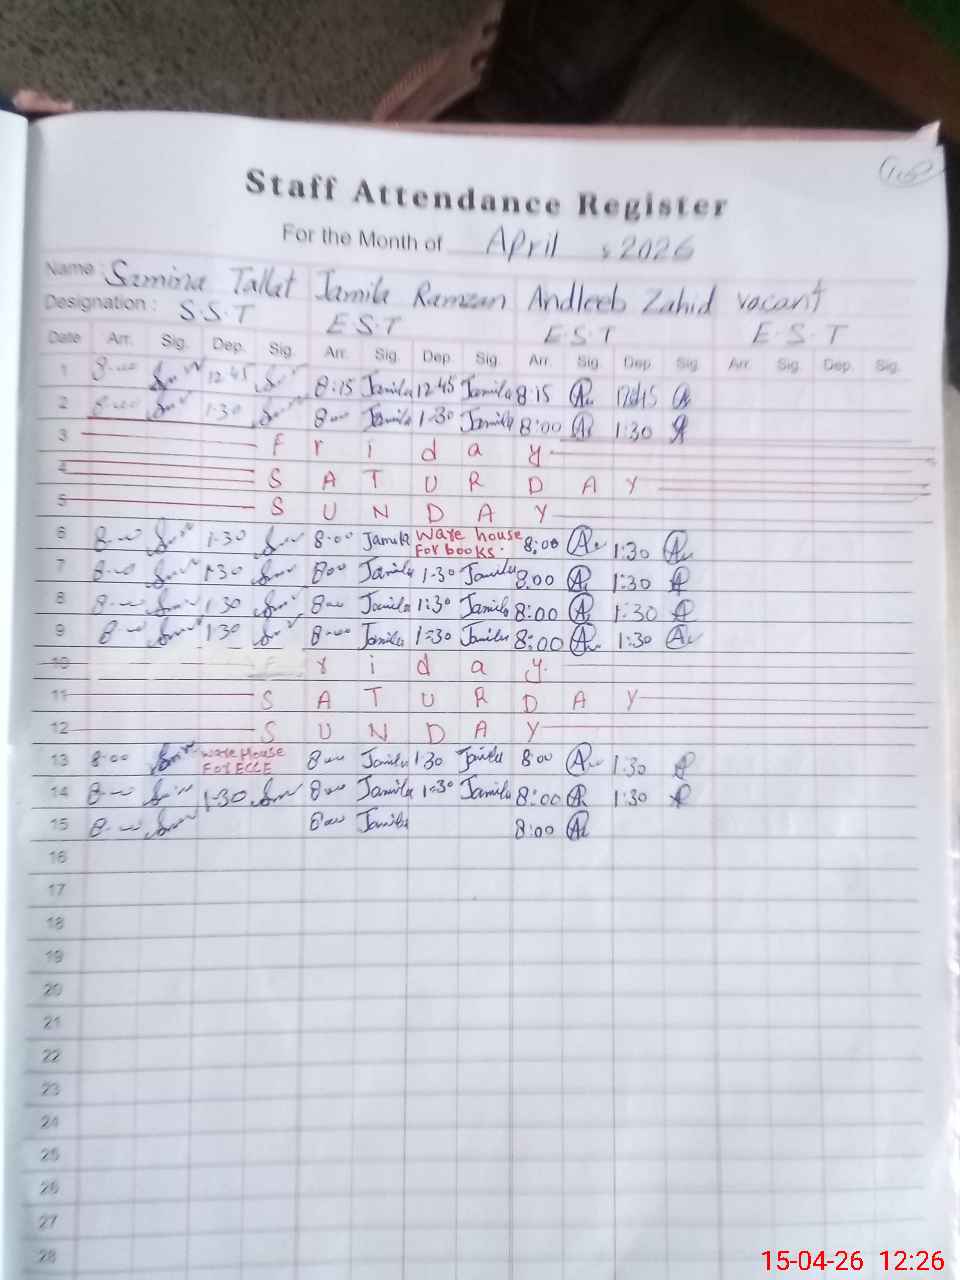 Staff Attendance Register
For the Month of April , 2026
Name : Samina Tallat Jamila Ramzan Andleeb Zahid vacant
Designation : S.S.T E.S.T E.S.T E.S.T
Date Arr. Sig. Dep. Sig. Arr. Sig. Dep. Sig. Arr. Sig. Dep. Sig. Arr. Sig. Dep. Sig.
1 8-00 12:45 8:15 Jamila 12:45 Jamila 8:15 12:45
2 8-00 1-30 8-00 Jamila 1-30 Jamila 8:00 1:30
3 Friday
4 SATURDAY
5 SUNDAY
6 8-00 1-30 8-00 Jamila Ware house For books. 8:00 1:30
7 8-00 1-30 800 Jamila 1-30 Jamila 8:00 1:30
8 8-00 1-30 8-00 Jamila 1:30 Jamila 8:00 1:30
9 8-00 1-30 8-00 Jamila 1-30 Jamila 8:00 1:30
10 Friday.
11 SATURDAY
12 SUNDAY
13 8-00 Ware House For ECCE 8-00 Jamila 130 Jamila 800 1:30
14 8-00 1-30 8-00 Jamila 1-30 Jamila 8:00 1:30
15 8-00 8-00 Jamila 8:00
16
17
18
19
20
21
22
23
24
25
26
27
28
15-04-26 12:26